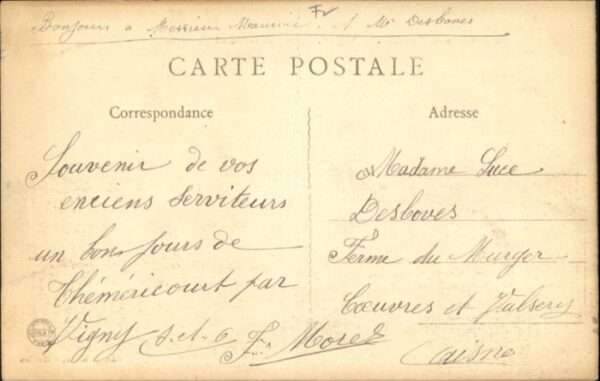 Bonjours a Monsieur Maurice. et Mr Desboves
CARTE POSTALE
Correspondance
Adresse
Souvenir de vos
enciens Serviteurs
un bon jours de
Théméricourt par
Vigny S-et-O F. Morel
Madame Luce
Desboves
Ferme du Murger
Cœuvres et Valsery
Aisne